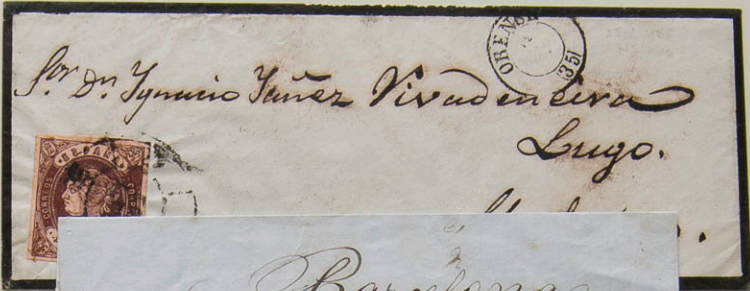 ORENSE
(35)
Sor Dn Ignacio Yañez Vivadeneira
Lugo.
ESPAÑA
CORREOS
Barcelona